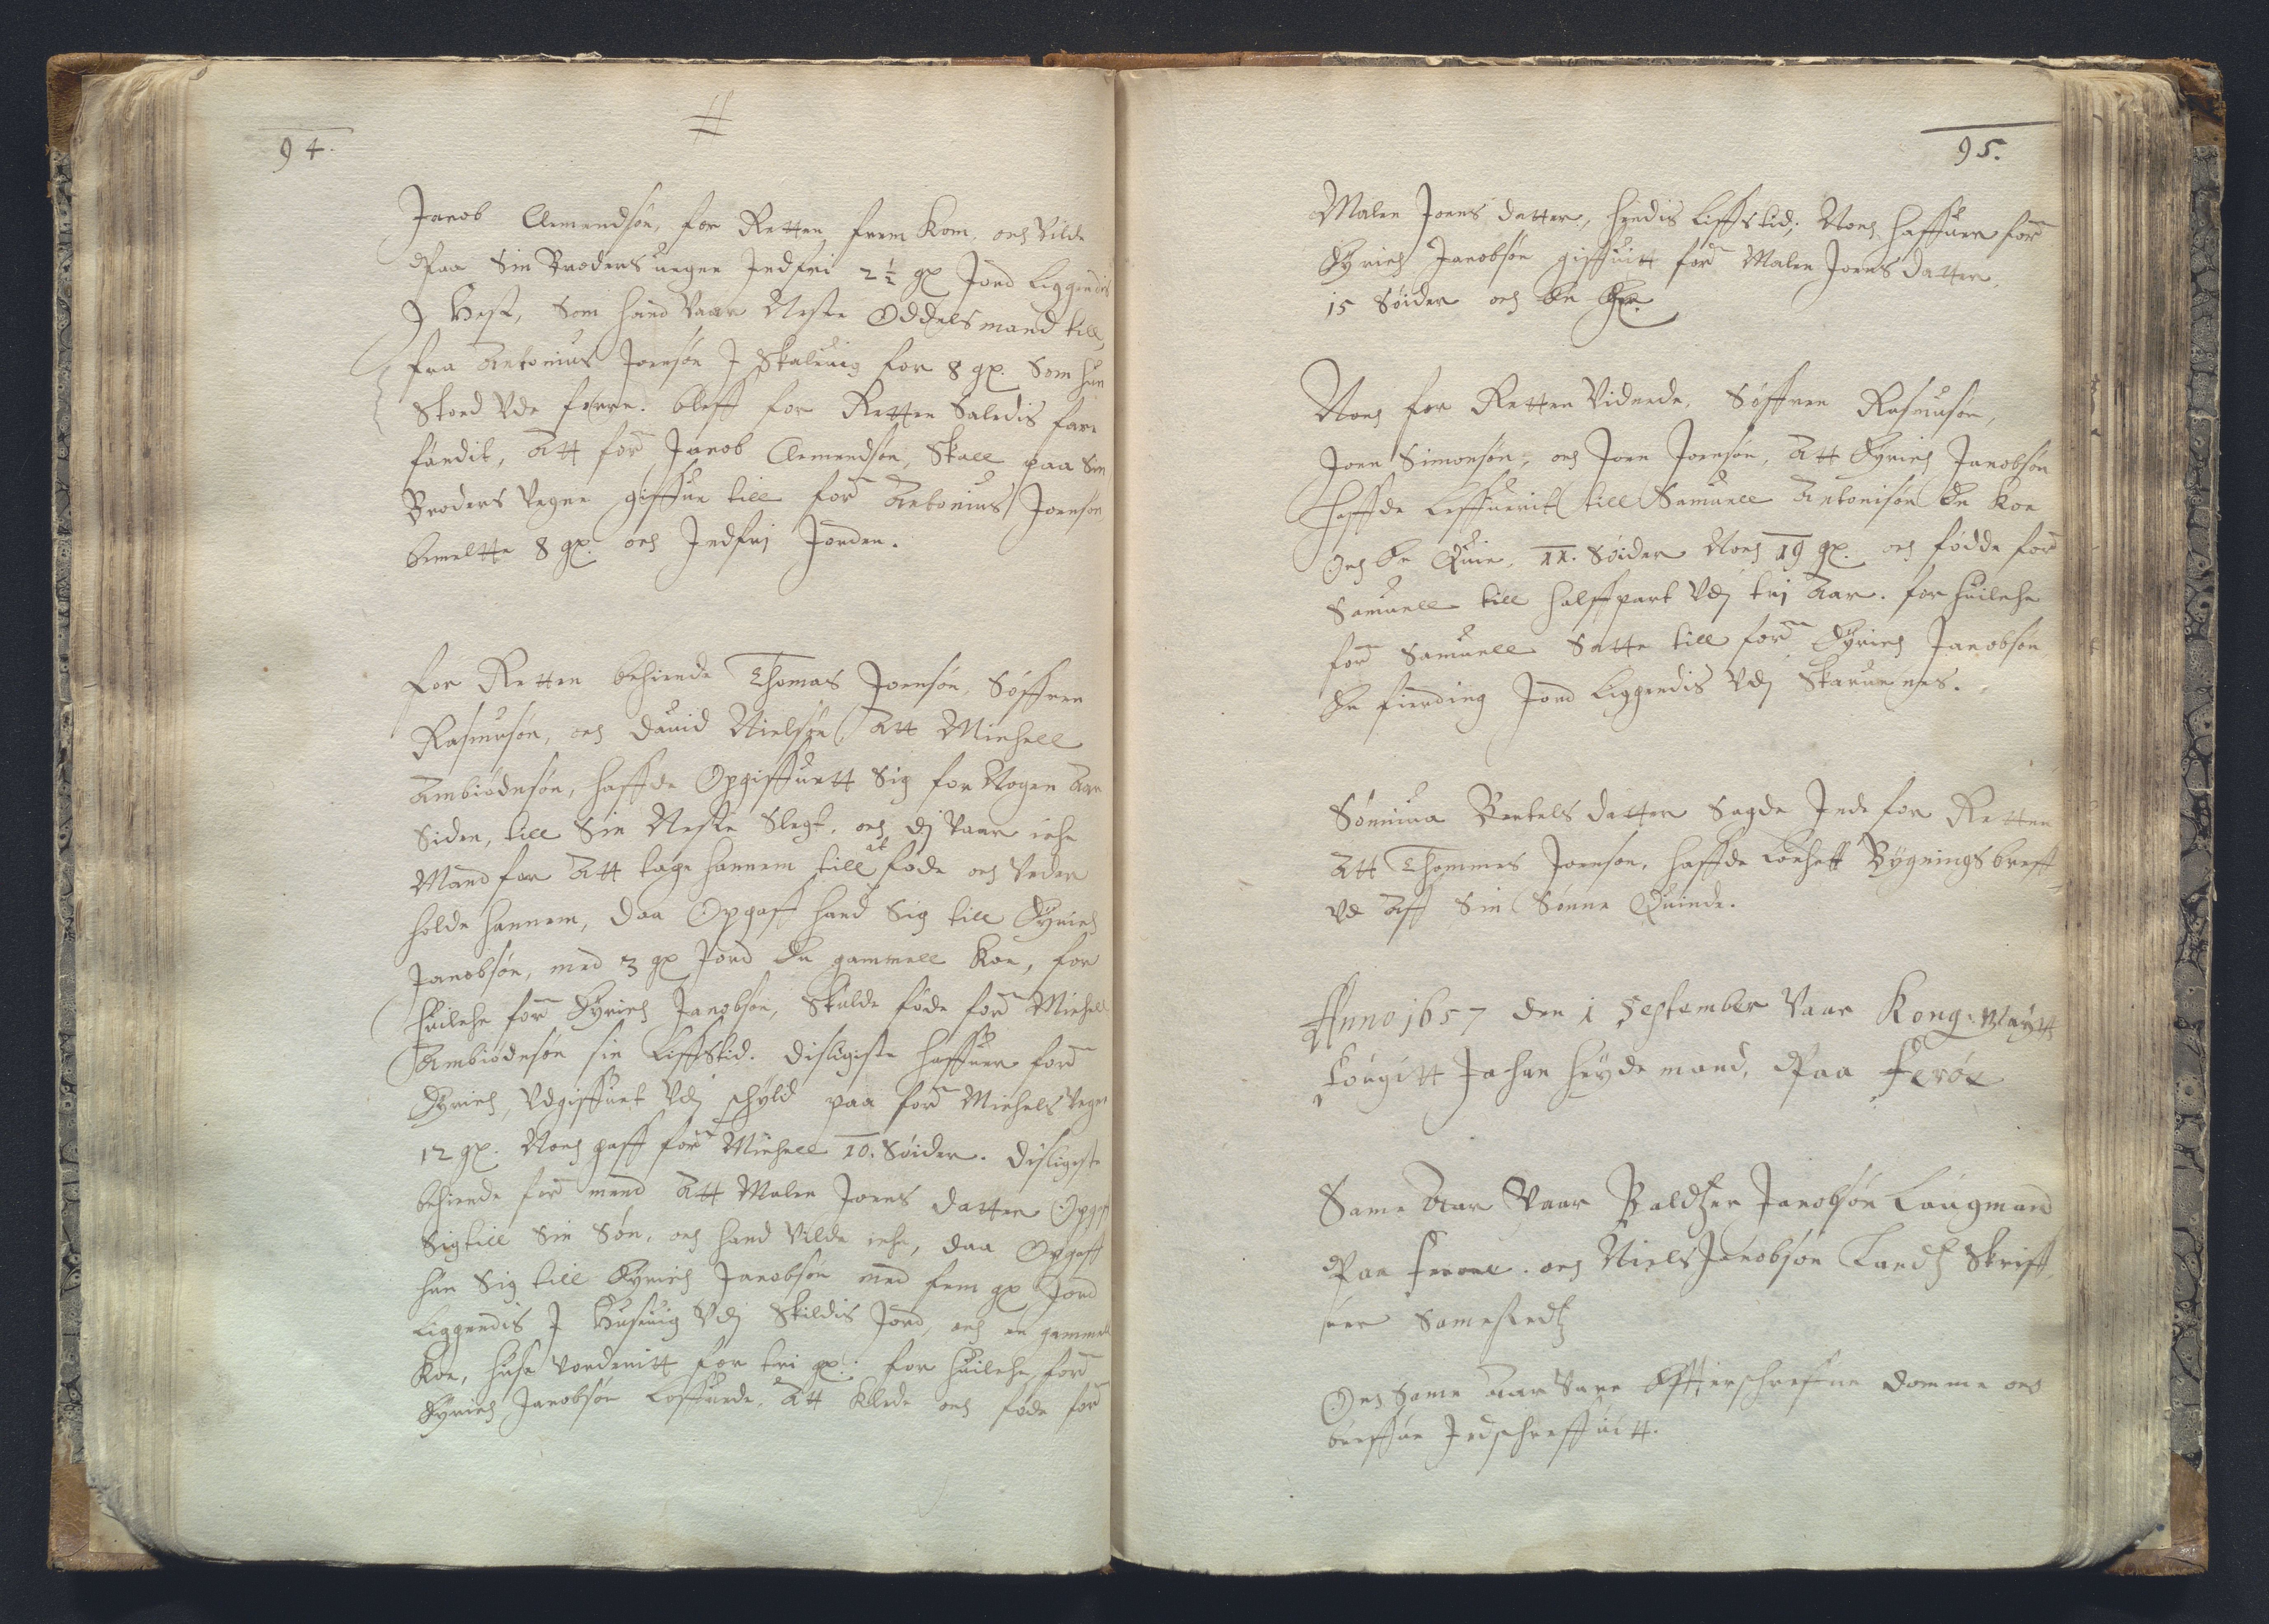 94.
Jacob Clemendsøn, for Retten frem Kom, och Vilde
Paa Sin Broders uegne Indfri 2½ gx Jord Liggendis
J Hest, Som hand Vaar Neste Oddelsmand till,
fra Antonius Joensøn J Skaluuig for 8 gx. Som hun
Stoed Vde forre. bleff for Retten Saledis fare
fundit, Att for: Jacob Clemendsøn, Skall paa Sin
Broders Vegne giffue till for: Antonius Joensøn
bemeltte 8 gx. och Indfrj Jorden.
For Retten behiende Thomas Joensøn, Søffren
Rasmusøn, och Dauid Nielsøn, Att Michell
Ambiødnsøn, haffde Opgiffuett Sig for Nogen Aar
Siden, till Sin Neste Slegt, och dj Vaar iche
Mand for Att tage hannem till at føde och Veder
holde hannem, daa Opgaff hand Sig till Dyrich
Jacobsøn, med 3 gx Jord En gammell Koe, for
huilche for: Dyrich Jacobsøn, Skulde føde for: Michell
Ambiødnsøn sin Liffstid. disligiste haffuer for:
Dyrich, Vdgiffuet Vdj schyld paa for: Michels Vegne
12 gx. Noch gaff for: Michell 10. Søider. disligeste
behiende for: mend Att Malen Joens datter Opgaff
Sig till Sin Søn, och hand Vilde iche, daa Opgaff
hun Sig till Dyrich Jacobsøn med fem gx Jord
Liggendis J Husuuig Vdj Skildis Jord, och en gammell
Koe, huse Vorderitt for tri gx: for huilche for:
Dyrich Jacobsøn Loffuede, Att klede och føde for:
95.
Malen Joens datter, hendis Liffstid; Noch haffuer for:
Dyrich Jacobsøn giffuitt for: Malen Joens datter,
15 Søider och En
Noch for Retten Vidnede, Søffren Rasmusøn,
Joen Simonsøn, och Joen Joensøn, Att Dyrich Jacobsøn
haffde Leffuerit till Samuell Antonisøn En Koe
Och En Quie, 11. Søider Noch 19 gx. och fødde for:
Samuell till halffpart Vdj trj Aar. for huilche
for: Samuell Satte till for: Dyrich Jacobsøn
En fierding Jord Liggendis Vdj Skaruenes.
Sønniua Bertels datter Sagde Inde for Retten
Att Thommes Joensøn, haffde Lochett Bygningsbreff
Vd Aff Sin Sønne Quinde.
Anno 1657 den 1 September Vaar Kong: Maÿtt
Fougitt Johan heÿdemand, Paa Ferøe
Same Aar Vaar Baldtzer Jacobsøn Laugmand
Paa Feroee. och Niels Jacobsøn Landtz Skriff,
uer Samestedtz
Och Same Aar Vare Effterschreffne Domme och
breffue Indschreffuitt.